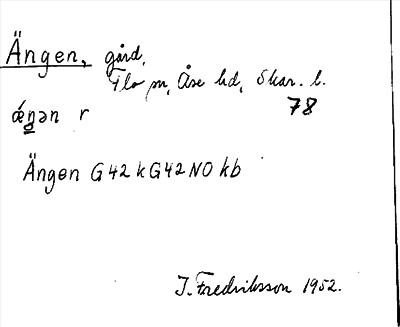 Ängen, gård,
Flo sn, Åse hd, Skar. l.
78
ǽŋən r
Ängen G42 k G42 NO kb
J. Fredriksson 1952.